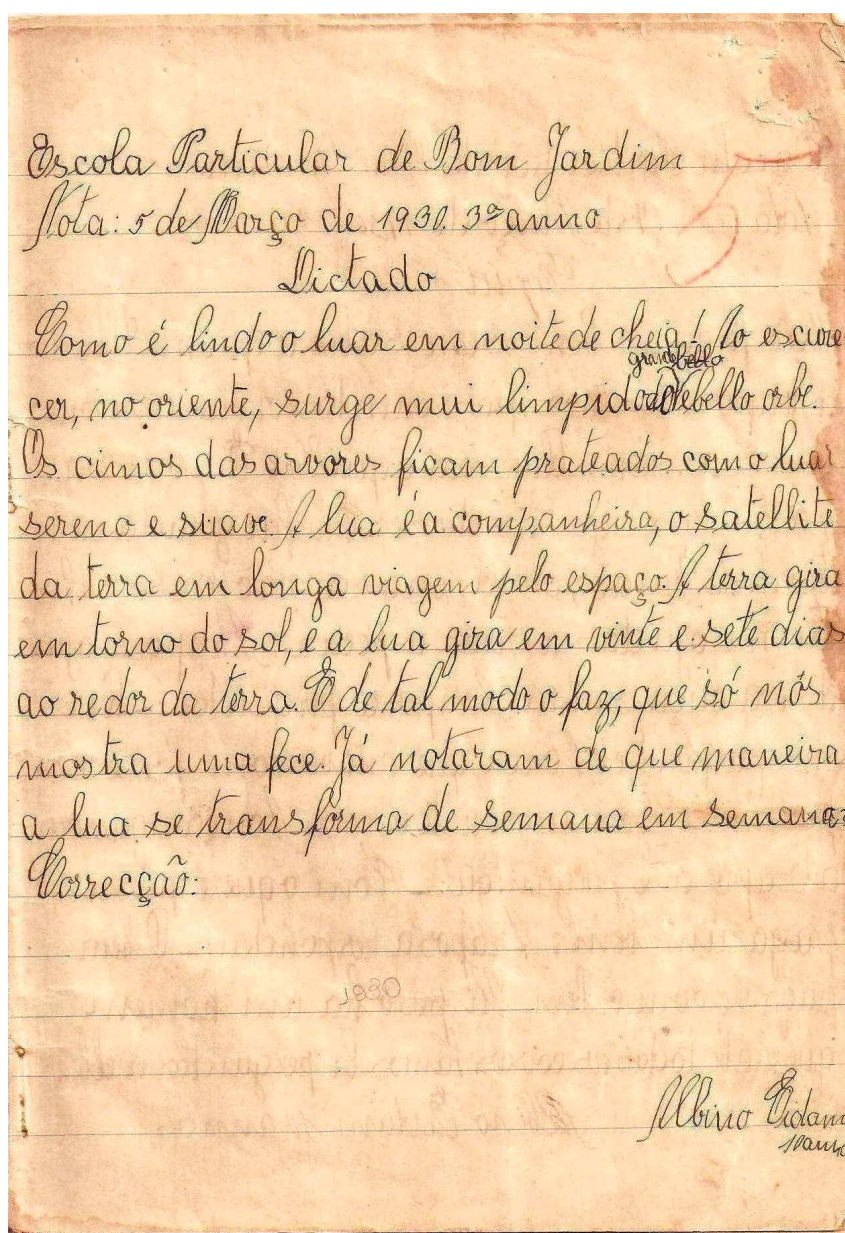 Escola Particular de Bom Jardim
Nota: 5 de Março de 1930. 3º anno
Dictado
Como é lindo o luar em noite de cheia! Ao escure
grande bello
cer, no oriente, surge mui limpido e bello orbe.
Os cimos das arvores ficam prateados com o luar
sereno e suave. A lua é a companheira, o satellite
da terra em longa viagem pelo espaço. A terra gira
em torno do sol, e a lua gira em vinte e sete dias
ao redor da terra. E de tal modo o faz, que só nós
mostra uma fece. Já notaram de que maneira
a lua se transforma de semana em semana?
Correcção:
1930
Albino Eidam
10 anno